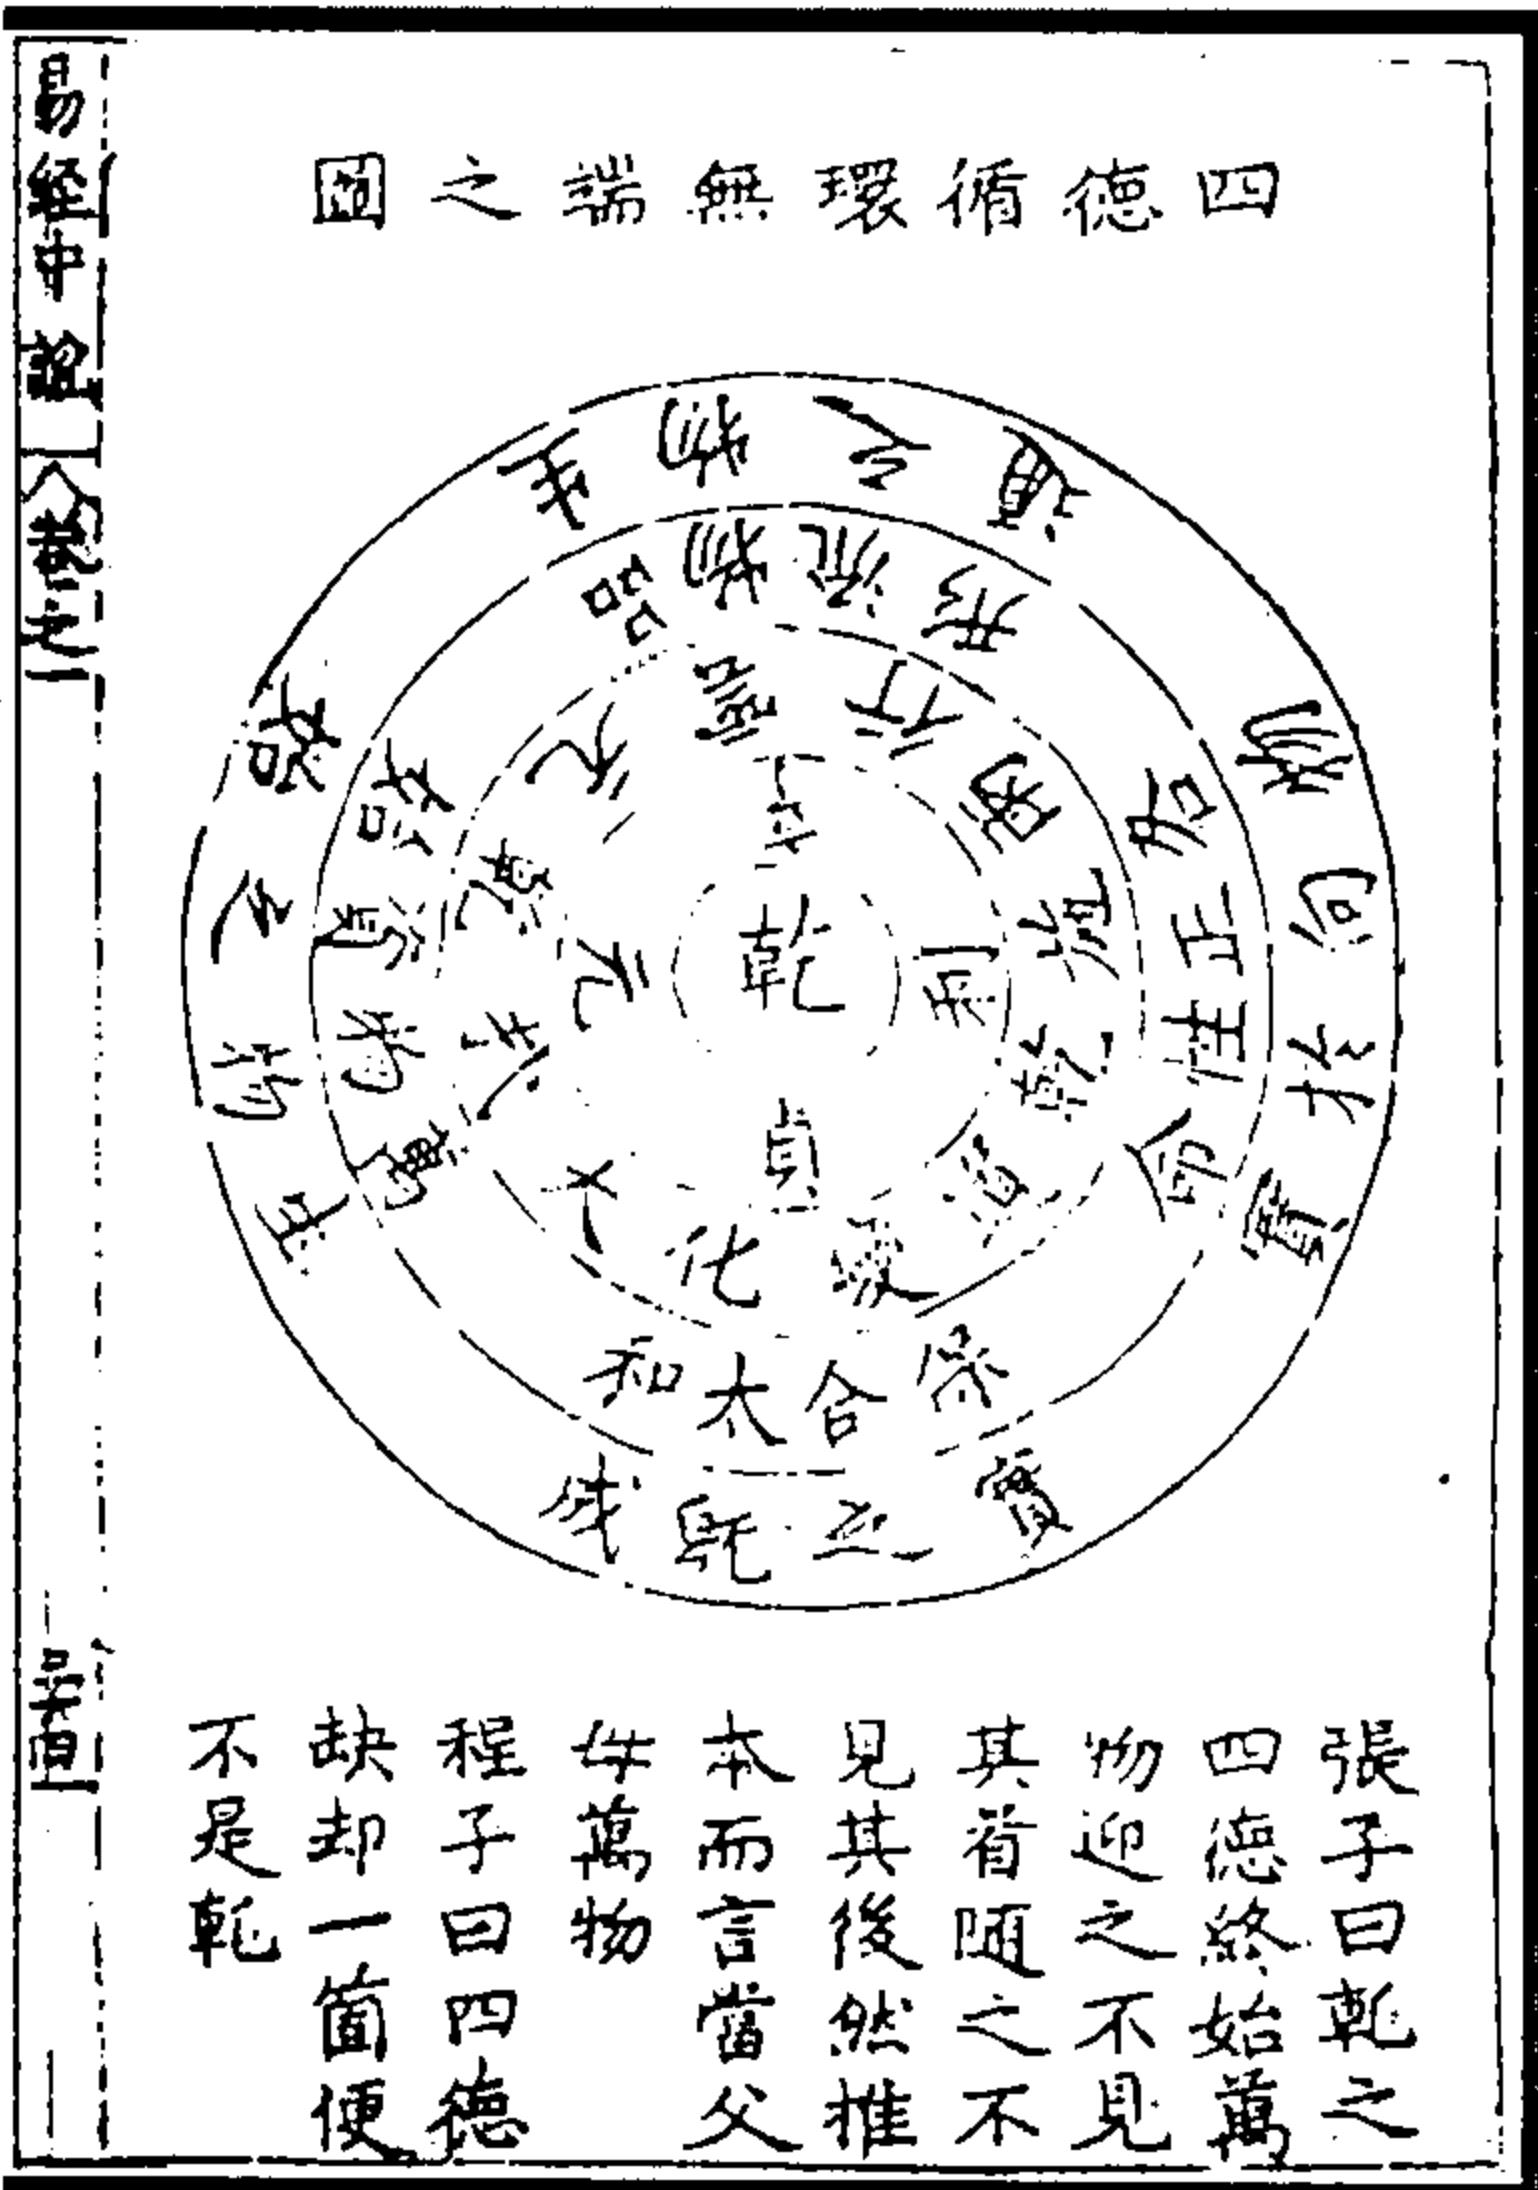 四德循環無端之圖
乾
元
亨
利
貞
大哉乾元
雲行雨施
乾道變化
萬物資始
品物流形
各正性命
保合太和
生物之始
生物之通
物向於實
實之既成
張子曰乾之
四德終始萬
物迎之不見
其首隨之不
見其後然推
本而言當父
母萬物
程子曰四德
缺却一箇便
不是乾
易經中 卷之一